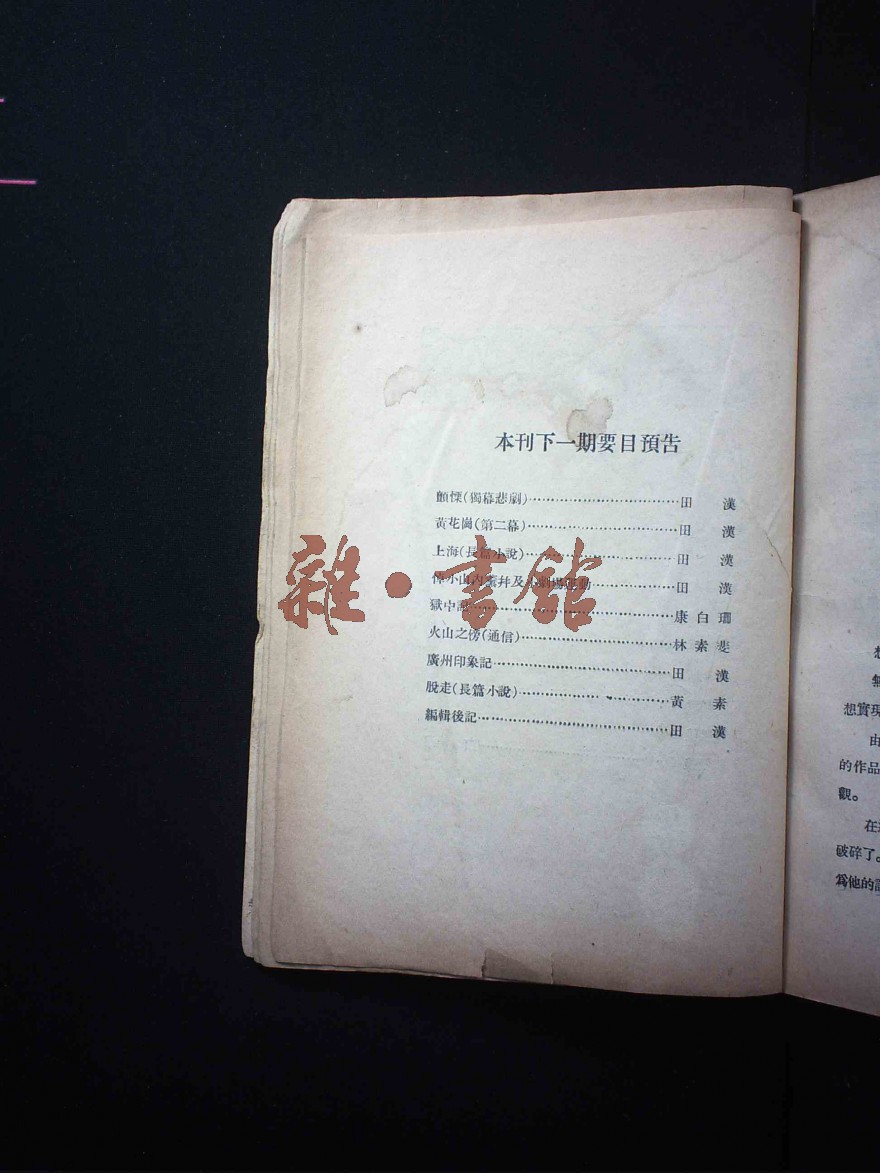 本刊下一期要目預告
顫慄(獨幕悲劇)……………………………田　漢
黃花崗(第二幕)……………………………田　漢
上海(長篇小說)……………………………田　漢
小山內薰 及 劇場運動……田　漢
獄中……………………………康白珊
火山之傍(通信)……………………………林素斐
廣州印象記……………………………田　漢
脫走(長篇小說)……………………………黃　素
編輯後記……………………………田　漢
雜·書館
想
無
想實現
由
的作品
觀。
在
破碎了。
爲他的